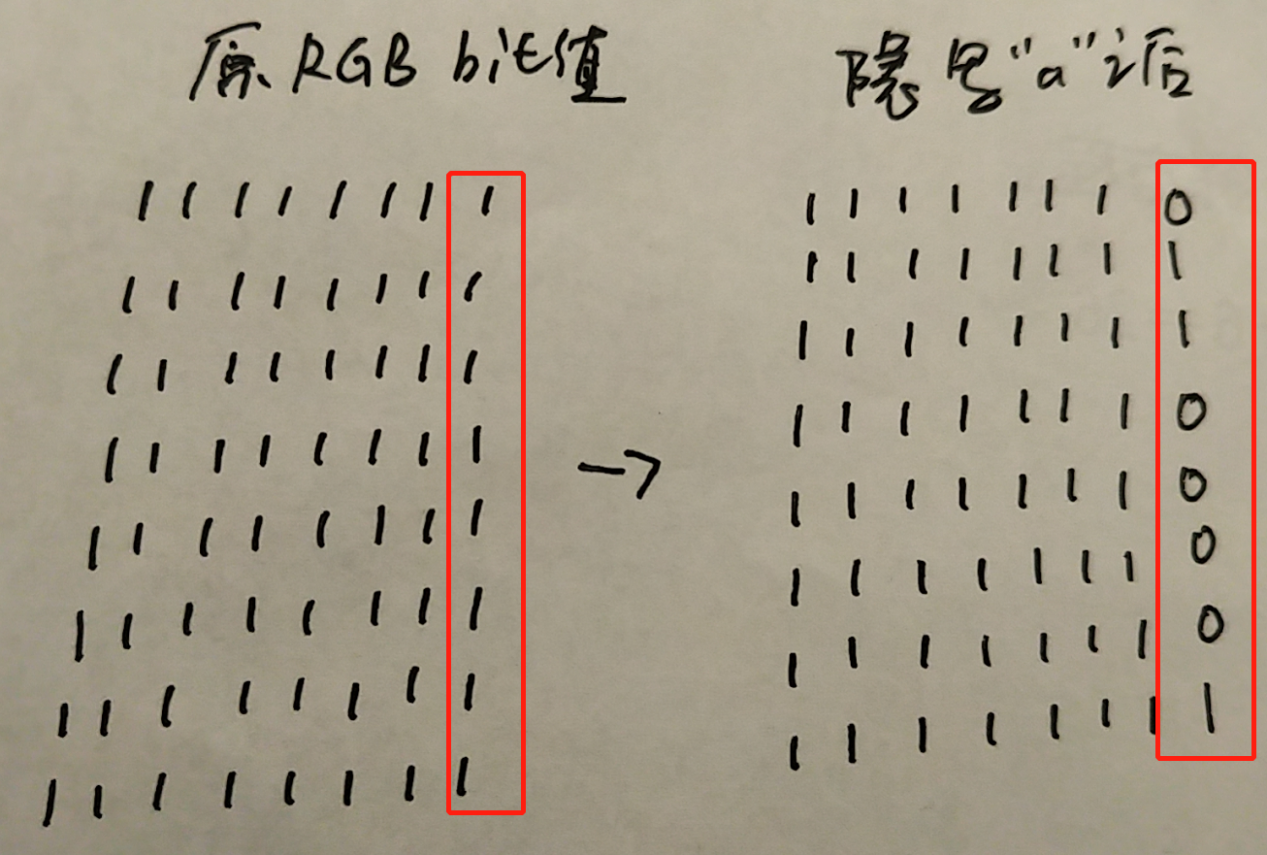 原 RGB bit值
1 1 1 1 1 1 1 1
1 1 1 1 1 1 1 1
1 1 1 1 1 1 1 1
1 1 1 1 1 1 1 1
1 1 1 1 1 1 1 1
1 1 1 1 1 1 1 1
1 1 1 1 1 1 1 1
1 1 1 1 1 1 1 1
→
隐写“a”之后
1 1 1 1 1 1 1 0
1 1 1 1 1 1 1 1
1 1 1 1 1 1 1 1
1 1 1 1 1 1 1 0
1 1 1 1 1 1 1 0
1 1 1 1 1 1 1 0
1 1 1 1 1 1 1 0
1 1 1 1 1 1 1 1